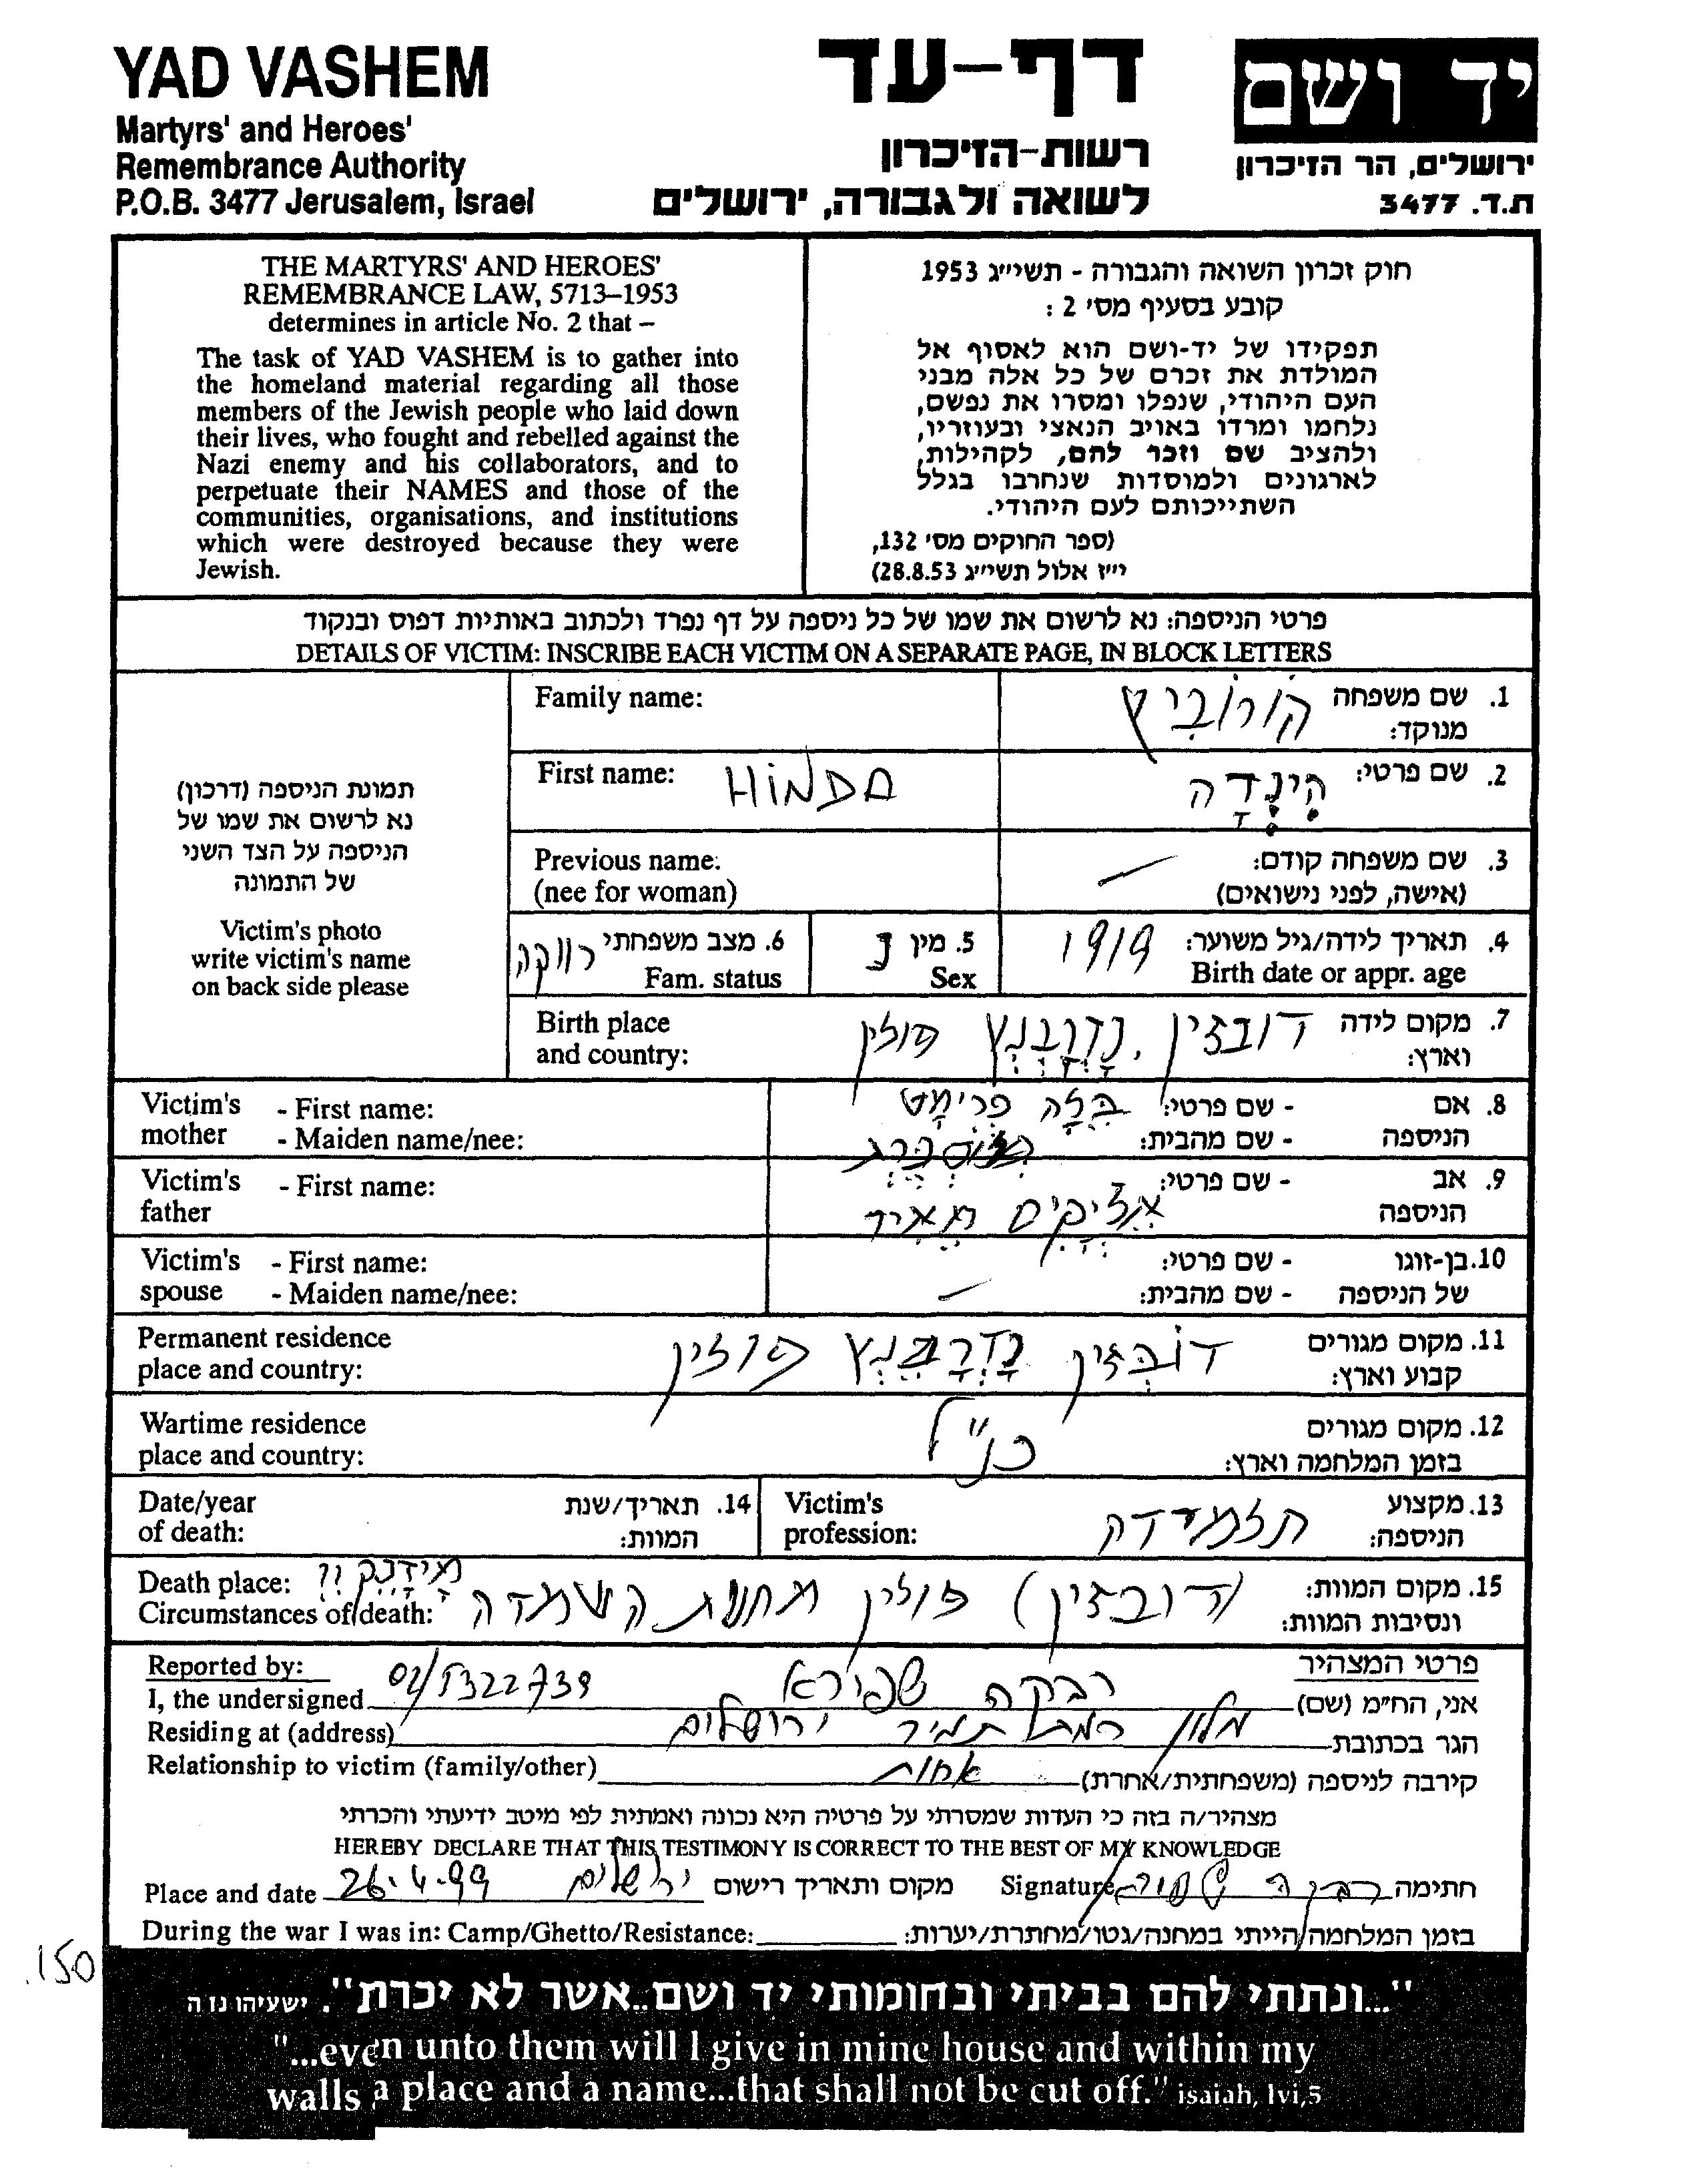 YAD VASHEM
Martyrs' and Heroes'
Remembrance Authority
P.O.B. 3477 Jerusalem, Israel
דף-עד
רשות-הזיכרון
לשואה ולגבורה, ירושלים
יד ושם
ירושלים, הר הזיכרון
ת.ד. 3477
THE MARTYRS' AND HEROES'
REMEMBRANCE LAW, 5713–1953
determines in article No. 2 that –
The task of YAD VASHEM is to gather into
the homeland material regarding all those
members of the Jewish people who laid down
their lives, who fought and rebelled against the
Nazi enemy and his collaborators, and to
perpetuate their NAMES and those of the
communities, organisations, and institutions
which were destroyed because they were
Jewish.
חוק זכרון השואה והגבורה - תשי״ג 1953
קובע בסעיף מס' 2 :
תפקידו של יד-ושם הוא לאסוף אל
המולדת את זכרם של כל אלה מבני
העם היהודי, שנפלו ומסרו את נפשם,
נלחמו ומרדו באויב הנאצי ובעוזריו,
ולהציב שם וזכר להם, לקהילות,
לארגונים ולמוסדות שנחרבו בגלל
השתייכותם לעם היהודי.
(ספר החוקים מס' 132,
י״ז אלול תשי״ג 28.8.53)
פרטי הניספה: נא לרשום את שמו של כל ניספה על דף נפרד ולכתוב באותיות דפוס ובנקוד
DETAILS OF VICTIM: INSCRIBE EACH VICTIM ON A SEPARATE PAGE, IN BLOCK LETTERS
תמונת הניספה (דרכון)
נא לרשום את שמו של
הניספה על הצד השני
של התמונה
Victim's photo
write victim's name
on back side please
Family name: קורוביץ 1. שם משפחה
מנוקד:
First name: HINDA הינדה 2. שם פרטי:
Previous name: — 3. שם משפחה קודם:
(nee for woman) (אישה, לפני נישואים)
6. מצב משפחתי רווקה 5. מין נ 1919 4. תאריך לידה/גיל משוער:
Fam. status Sex Birth date or appr. age
Birth place דובזין, פולין 7. מקום לידה
and country: וארץ:
Victim's - First name: בלה פרימט - שם פרטי: 8. אם
mother - Maiden name/nee: - שם מהבית: הניספה
Victim's - First name: - שם פרטי: 9. אב
father מאיר הניספה
Victim's - First name: - שם פרטי: 10. בן-זוגו
spouse - Maiden name/nee: — - שם מהבית: של הניספה
Permanent residence דובזין פולין 11. מקום מגורים
place and country: קבוע וארץ:
Wartime residence כנ״ל 12. מקום מגורים
place and country: בזמן המלחמה וארץ:
Date/year 14. תאריך/שנת Victim's תלמידה 13. מקצוע
of death: המוות: profession: הניספה:
Death place: (דובזין) פולין מחנת השמדה מידנק ?? 15. מקום המוות:
Circumstances of death: ונסיבות המוות:
Reported by: פרטי המצהיר
I, the undersigned 02/5322739 רבקה שפירא אני, הח״מ (שם)
Residing at (address) מלון רמת תמיר ירושלים הגר בכתובת
Relationship to victim (family/other) אחות קירבה לניספה (משפחתית/אחרת)
מצהיר/ה בזה כי העדות שמסרתי על פרטיה היא נכונה ואמתית לפי מיטב ידיעתי והכרתי
HEREBY DECLARE THAT THIS TESTIMONY IS CORRECT TO THE BEST OF MY KNOWLEDGE
Place and date 26.4.99 ירושלים מקום ותאריך רישום Signature רבקה שפירא חתימה
During the war I was in: Camp/Ghetto/Resistance: בזמן המלחמה הייתי במחנה/גטו/מחתרת/יערות:
150
"...ונתתי להם בביתי ובחומותי יד ושם..אשר לא יכרת". ישעיהו נו ה
"...even unto them will I give in mine house and within my
walls a place and a name...that shall not be cut off." isaiah, lvi,5